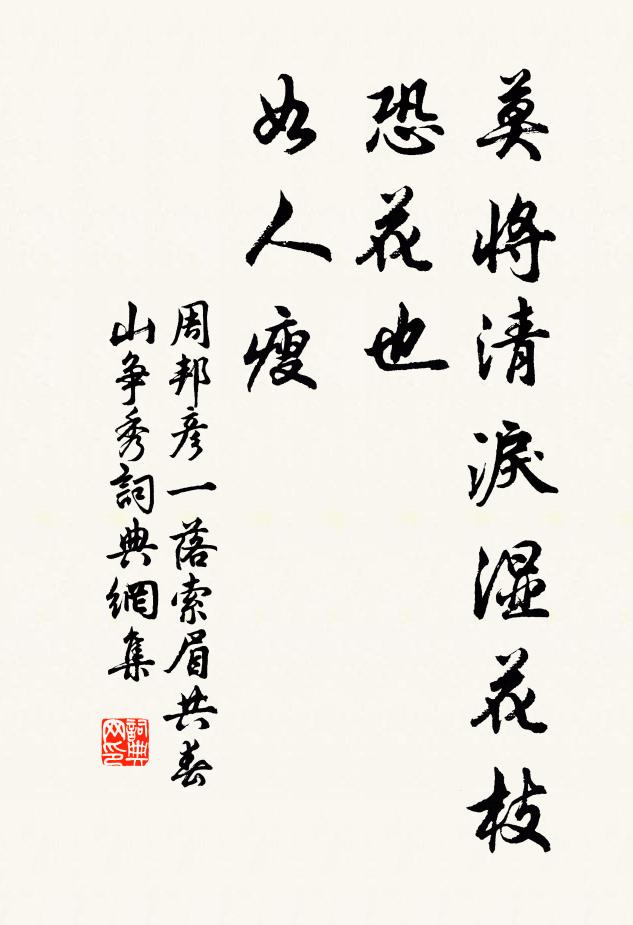 莫将清淚湿花枝
恐花也
如人瘦
周邦彦一落索眉共春
山争秀詞典網集
詞典
网印